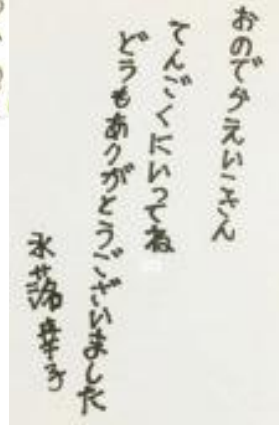 おのでらえいこさん
てんごくにいってね
どうもありがとうございました